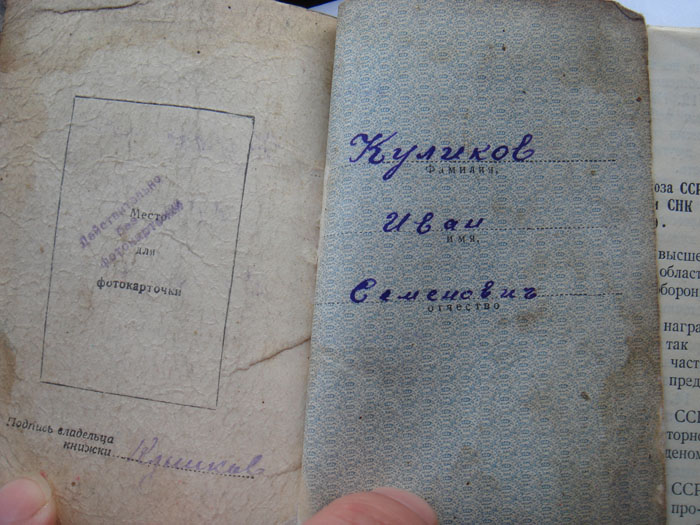 Действительно
без
фотокарточки
Место
для
фотокарточки
Подпись владельца
книжки Куликов
Куликов
Фамилия,
Иван
имя,
Семенович
отчество
оза ССР
и СНК
высше
област
борон
награ
так
част
пред
ССР
торно
деном
ССР
про-